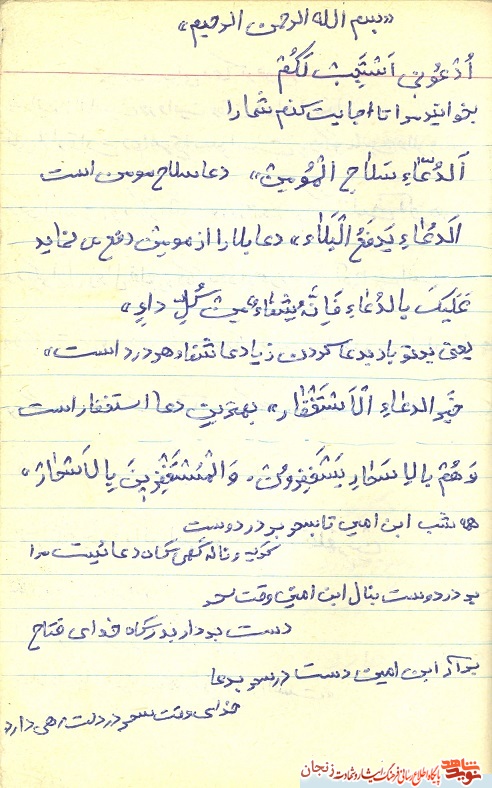 «بسم الله الرحمن الرحیم»
اُدْعُونی اَسْتَجِبْ لَکُمْ
بخوانید مرا تا اجابت کنم شما را
اَلدُّعاءِ سَلاحِ الْمُومِن» دعا سلاح مومن است
اَلدُعاءِ یَدفَعُ الْبَلاء» دعا بلا را از مومن دفع می نماید
عَلَیکَ بِالدُعاءِ فَاِنَّهُ شِفاءٌ مِن کُلِّ داءٍ»
یعنی بر تو باد بدعا کردن زیرا دعا شفاء هر درد است»
خَیرَ الدعاءِ الْاَسْتَغْفار» بهترین دعا استغفار است
وَ هُمْ بِالاِسَحارِ یَسْتَغفِرونَ. وَالْمُسْتَغْفِرینَ بِالاَسْحارْ»
همه شب ابن امین تا بسحر بر در دوست
گریه و ناله کنی گاه دعا نیست مرا
بر در دوست بنال ابن امین وقت سحر
دست بردار بدرگاه خدای فتاح
برآر ابن امین دست در سحر بدعا
خدای وقت سحر در دلت رهی دارد
نوید شاهد
پایگاه اطلاع رسانی فرهنگ ایثار و شهادت زنجان